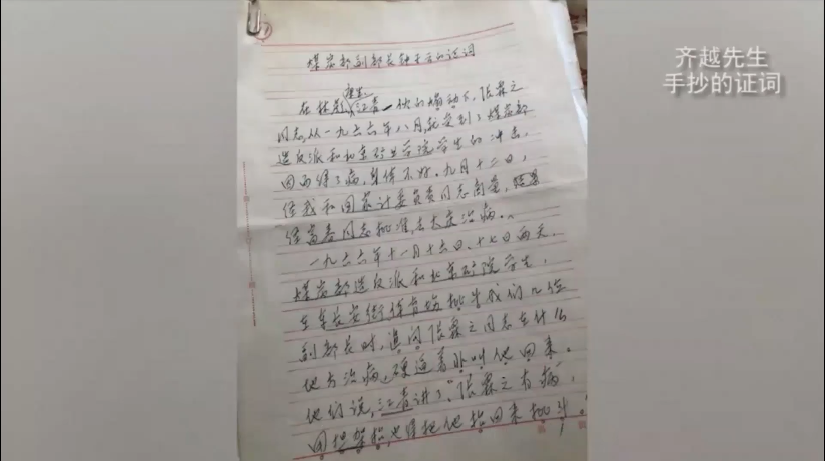 齐越先生
手抄的证词
煤炭部副部长钟子云的证词
康生、
在林彪、江青一伙的煽动下,张霖之
同志,从一九六六年八月,就受到了煤炭部
造反派和北京矿业学院学生的冲击,
因而得了病,身体不好。九月十二日,
经我和国家计委负责同志商量,
经富春同志批准,去大庆治病。
一九六六年十一月十六日、十七日两天,
煤炭部造反派和北京矿院学生,
在东长安街体育场批斗我们几位
副部长时,追问张霖之同志在什么
地方治病,硬逼着非叫他回来。
他们说,江青讲了,“张霖之有病,
用担架抬,也得把他抬回来批斗。”